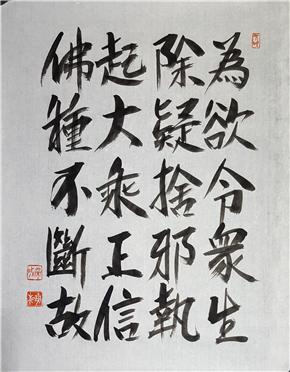 為欲令衆生
除疑捨邪執
起大乘正信
佛種不斷故